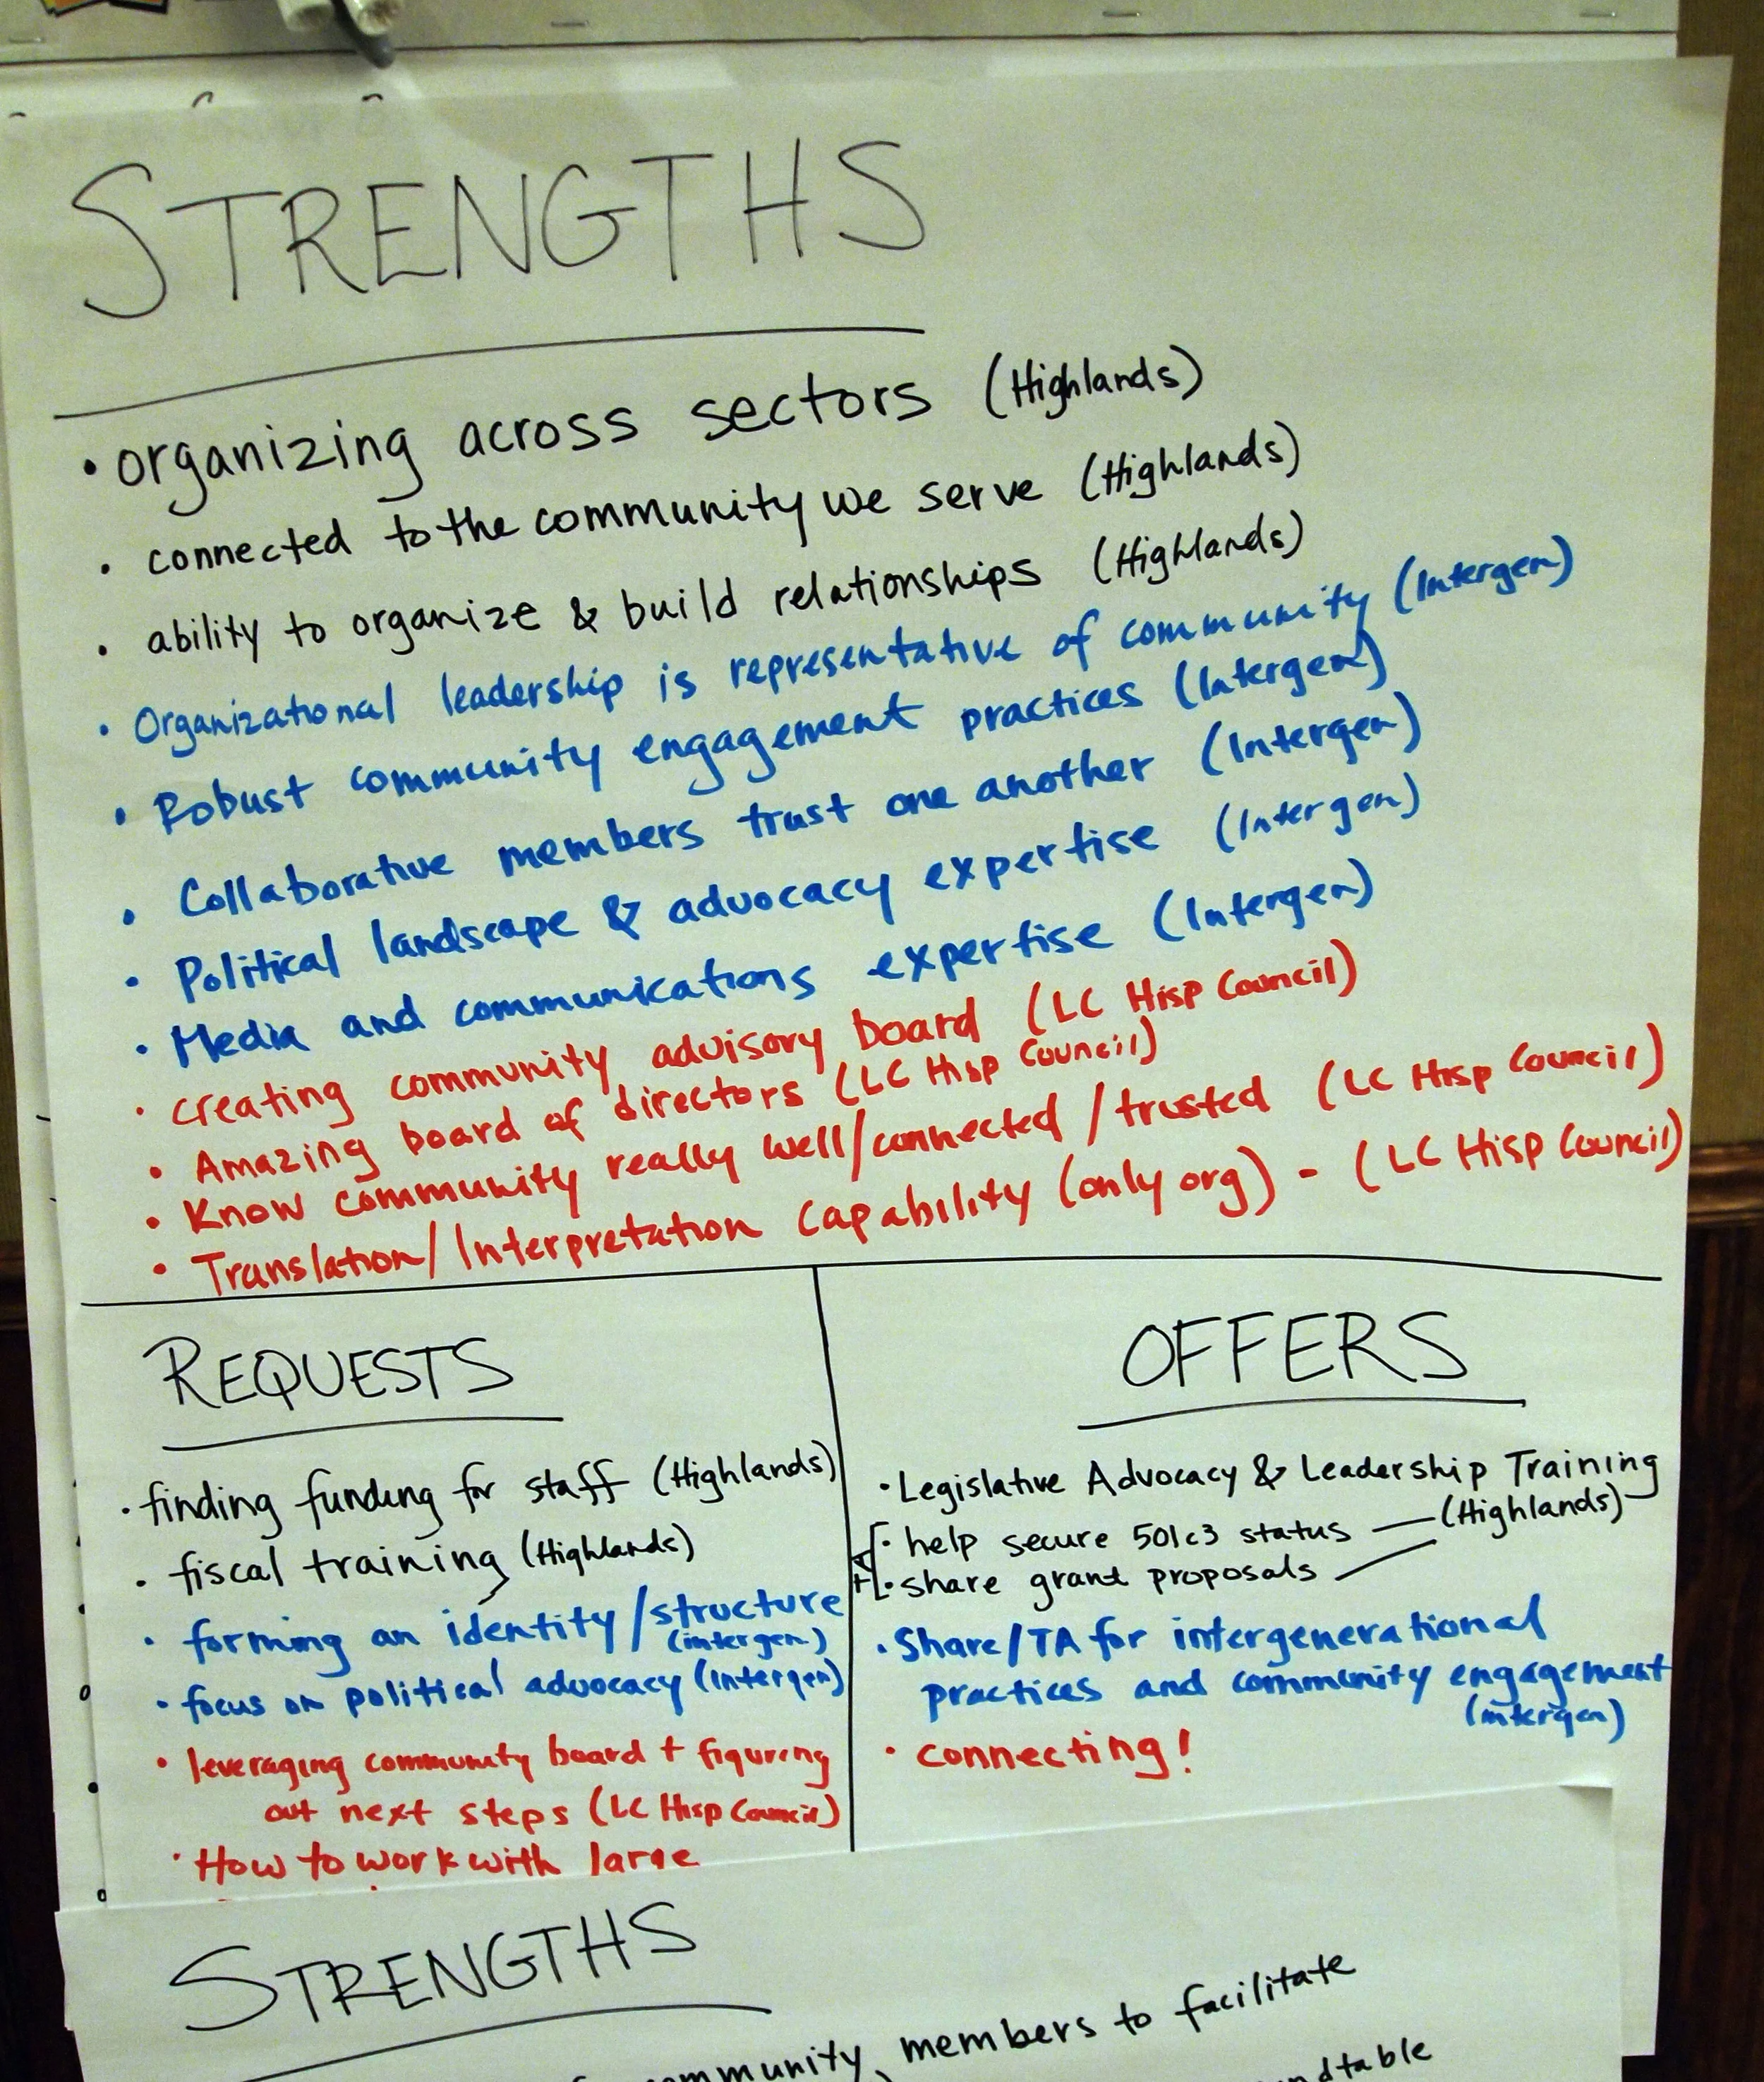 STRENGTHS
• organizing across sectors (Highlands)
• connected to the community we serve (Highlands)
• ability to organize & build relationships (Highlands)
• Organizational leadership is representative of community (Intergen)
• Robust community engagement practices (Intergen)
• Collaborative members trust one another (Intergen)
• Political landscape & advocacy expertise (Intergen)
• Media and communications expertise (Intergen)
• creating community advisory board (LC Hisp Council)
• Amazing board of directors (LC Hisp Council)
• Know community really well/connected/trusted (LC Hisp Council)
• Translation/Interpretation capability (only org) - (LC Hisp Council)
REQUESTS
• finding funding for staff (Highlands)
• fiscal training (Highlands)
• forming an identity/structure
(intergen)
• focus on political advocacy (Intergen)
• leveraging community board + figuring
out next steps (LC Hisp Council)
• How to work with large
OFFERS
• Legislative Advocacy & Leadership Training
• help secure 501c3 status — (Highlands)
+ • share grant proposals —
• Share/TA for intergenerational
practices and community engagement
(intergen)
• connecting!
STRENGTHS
members to facilitate